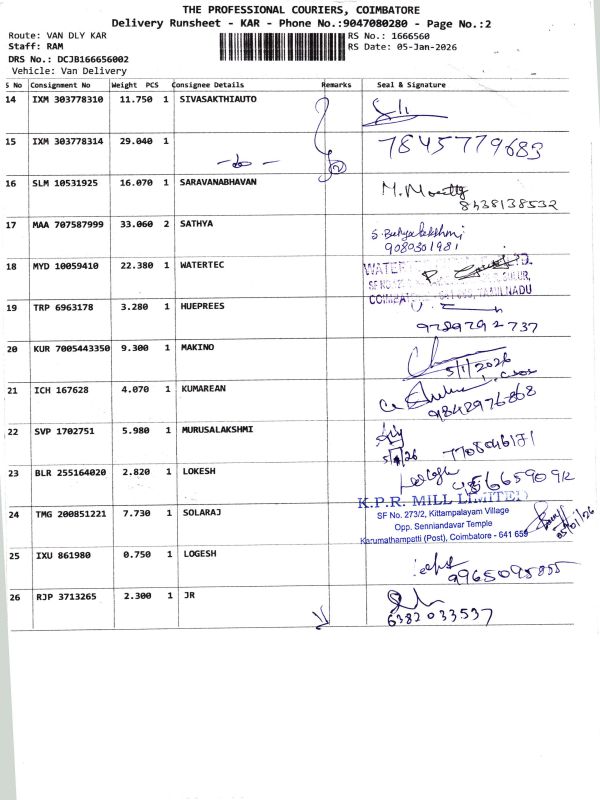 THE PROFESSIONAL COURIERS, COIMBATORE
Delivery Runsheet - KAR - Phone No.:9047080280 - Page No.:2
Route: VAN DLY KAR
RS No.: 1666560
Staff: RAM
RS Date: 05-Jan-2026
DRS No.: DCJB166656002
Vehicle: Van Delivery
S No Consignment No Weight PCS Consignee Details Remarks Seal & Signature
14 IXM 303778310 11.750 1 SIVASAKTHIAUTO
15 IXM 303778314 29.040 1 7845779683
16 SLM 10531925 16.070 1 SARAVANABHAVAN
8438138532
17 MAA 707587999 33.060 2 SATHYA
9080301981
18 MYD 10059410 22.380 1 WATERTEC
WATER
TAMILNADU
19 TRP 6963178 3.280 1 HUEPREES
9789792737
20 KUR 7005443350 9.300 1 MAKINO
5/1/2026
21 ICH 167628 4.070 1 KUMAREAN
9842976868
22 SVP 1702751 5.980 1 MURUSALAKSHMI
7708046171
23 BLR 255164020 2.820 1 LOKESH
K.P.R. MILL LIMITED
24 TMG 200851221 7.730 1 SOLARAJ
SF No. 273/2, Kittampalayam Village
Opp. Senniandavar Temple
Karumathampatti (Post), Coimbatore - 641 659
05/01/26
25 IXU 861980 0.750 1 LOGESH
9965095855
26 RJP 3713265 2.300 1 JR
6382033537